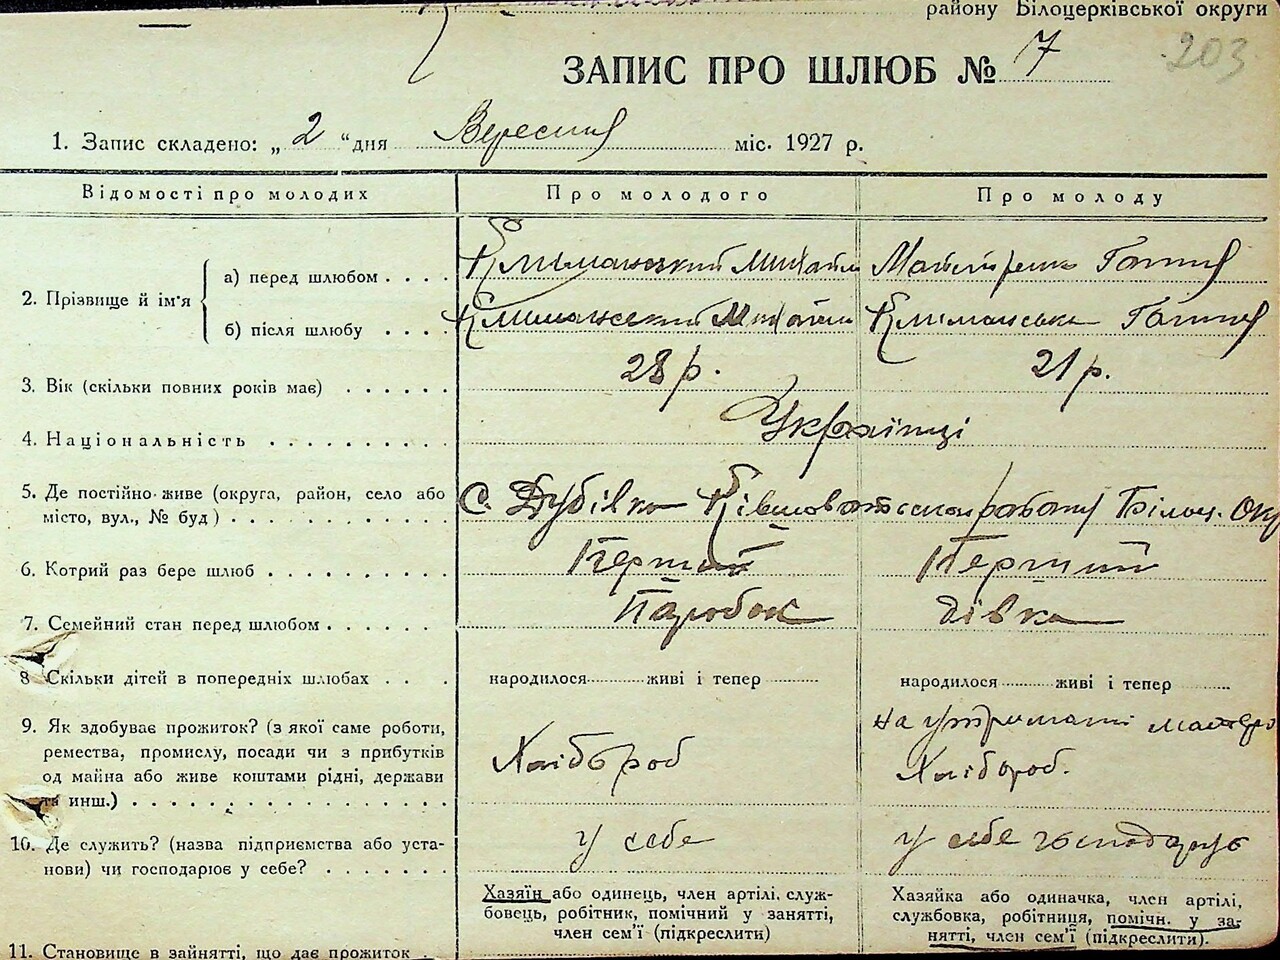 району Білоцерківської округи
ЗАПИС ПРО ШЛЮБ № 7
203
1. Запис складено: „ 2 “ дня Вересня міс. 1927 р.
Відомості про молодих
Про молодого
Про молоду
2. Прізвище й ім'я
а) перед шлюбом . . . .
Кліманський Михайло
Гапка
б) після шлюбу . . . .
Кліманський Михайло
Кліманська Гапка
3. Вік (скільки повних років має) . . . . . .
28 р.
21 р.
4. Національність . . . . . . . . . .
Українці
5. Де постійно живе (округа, район, село або
місто, вул., № буд) . . . . . . . . . . . .
С. Дубівка району Білоц. Окр
6. Котрий раз бере шлюб . . . . . . . . . .
Перший
Перший
7. Семейний стан перед шлюбом . . . . . .
Паробок
дівка
8 Скільки дітей в попередніх шлюбах . . .
народилося ......... живі і тепер .........
народилося ......... живі і тепер .........
9. Як здобуває прожиток? (з якої саме роботи,
ремества, промислу, посади чи з прибутків
од майна або живе коштами рідні, держави
та инш.) . . . . . . . . . . . . . . . . .
Хлібороб
на утриманні матери
Хлібороб.
10. Де служить? (назва підприємства або уста-
нови) чи господарює у себе? . . . . . . .
у себе
у себе господарує
Хазяїн або одинець, член артілі, служ-
бовець, робітник, помічний у занятті,
член сем'ї (підкреслити)
Хазяйка або одиначка, член артілі,
службовка, робітниця, помічн. у за-
нятті, член сем'ї (підкреслити).
11. Становище в зайнятті, що дає прожиток .